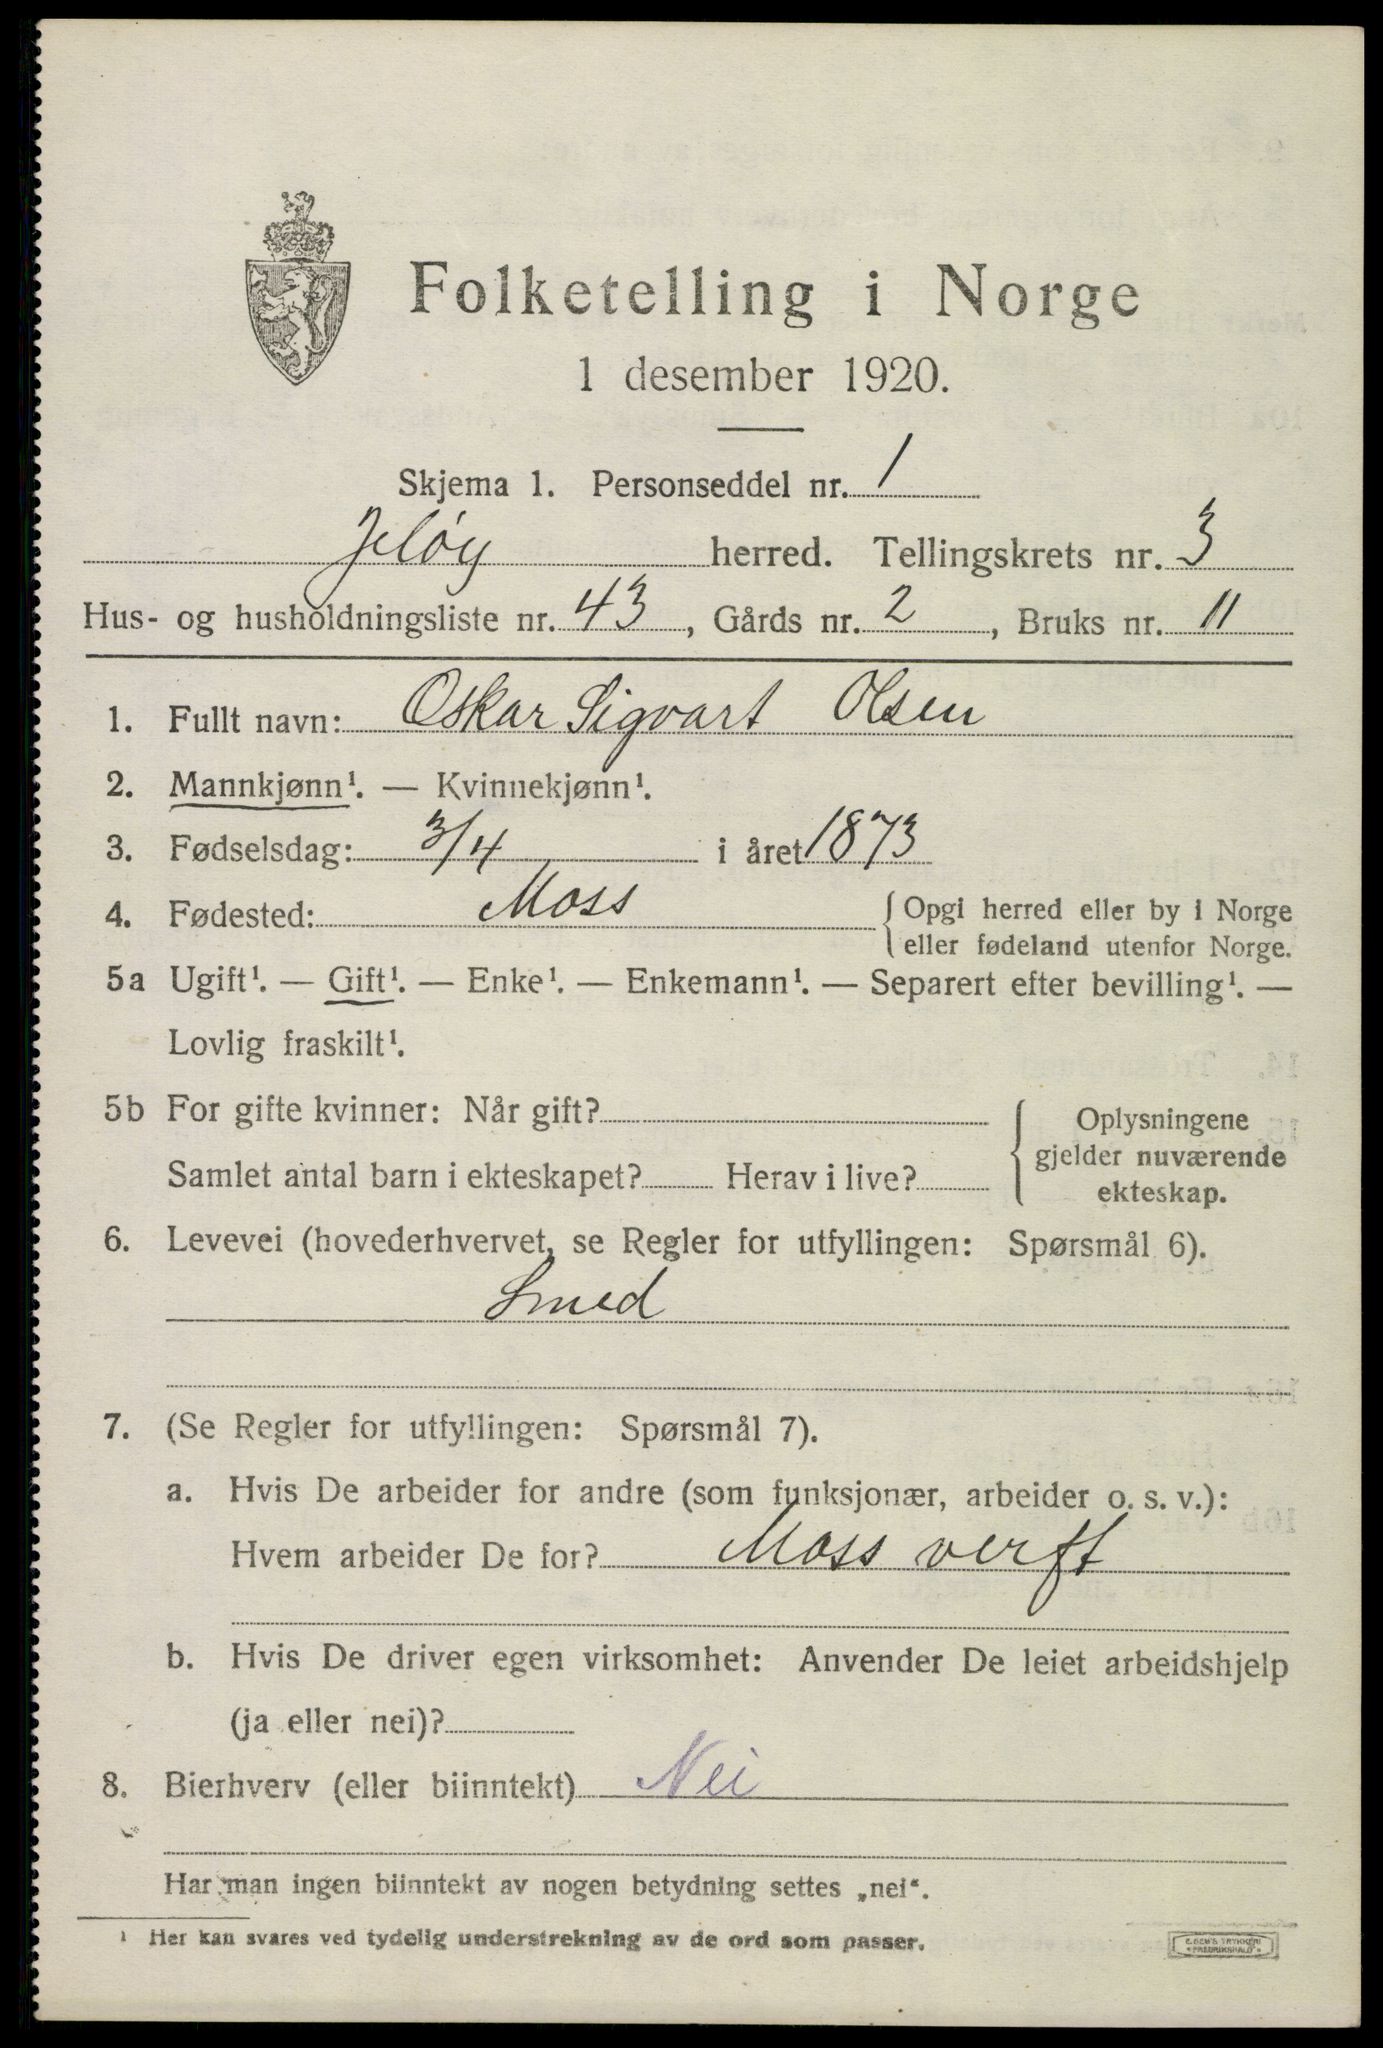 Folketelling i Norge
1 desember 1920.
Skjema 1. Personseddel nr. 1
Jeløy herred. Tellingskrets nr. 3
Hus- og husholdningsliste nr. 43, Gårds nr. 2, Bruks nr. 11
1. Fullt navn: Oskar Sigvart Olsen
2. Mannkjønn¹. — Kvinnekjønn¹.
3. Fødselsdag: 3/4 i året 1873
4. Fødested: Moss { Opgi herred eller by i Norge
eller fødeland utenfor Norge.
5a Ugift¹. — Gift¹. — Enke¹. — Enkemann¹. — Separert efter bevilling¹. —
Lovlig fraskilt¹.
5b For gifte kvinner: Når gift?
Samlet antal barn i ekteskapet? Herav i live?
Oplysningene
gjelder nuværende
ekteskap.
6. Levevei (hovederhvervet, se Regler for utfyllingen: Spørsmål 6).
Smed
7. (Se Regler for utfyllingen: Spørsmål 7).
a. Hvis De arbeider for andre (som funksjonær, arbeider o. s. v.):
Hvem arbeider De for? Moss verft
b. Hvis De driver egen virksomhet: Anvender De leiet arbeidshjelp
(ja eller nei)?
8. Bierhverv (eller biinntekt) Nei
Har man ingen biinntekt av nogen betydning settes „nei“.
¹ Her kan svares ved tydelig understrekning av de ord som passer.